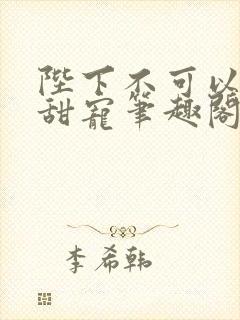 陛下不可以
甜寵筆趣閣
李希韩